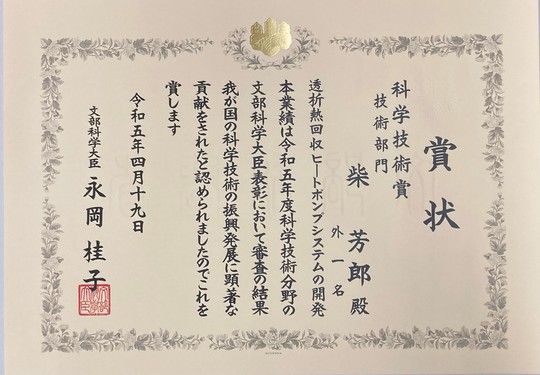 賞状
科学技術賞
技術部門
柴 芳郎 殿
外一名
透析熱回収ヒートポンプシステムの開発
本業績は令和五年度科学技術分野の
文部科学大臣表彰において審査の結果
我が国の科学技術の振興発展に顕著な
貢献をされたと認められましたのでこれを
賞します
令和五年四月十九日
文部科学大臣 永岡桂子